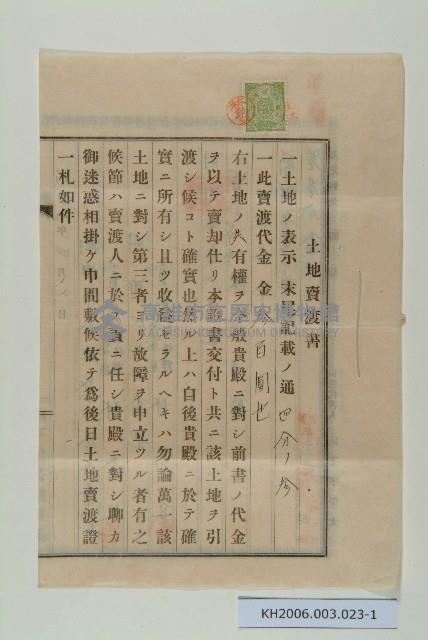 土地賣渡書
一土地ノ表示 末尾記載ノ通 四分ノ参
一此賣渡代金 金 百圓也
右土地ノ共有權ヲ今般貴殿ニ對シ前書ノ代金
ヲ以テ賣却仕リ本證書交付ト共ニ該土地ヲ引
渡シ候コト確實也然ル上ハ自後貴殿ニ於テ確
實ニ所有シ且ツ收益セラルヘキハ勿論萬一該
土地ニ對シ第三者ヨリ故障ヲ申立ツル者有之
候節ハ賣渡人ニ於テ責ニ任シ貴殿ニ對シ聊カ
御迷惑相掛ケ申間敷候依テ為後日土地賣渡證
一札如件
高雄市立歷史博物館
KAOHSIUNG MUSEUM OF HISTORY
KH2006.003.023-1